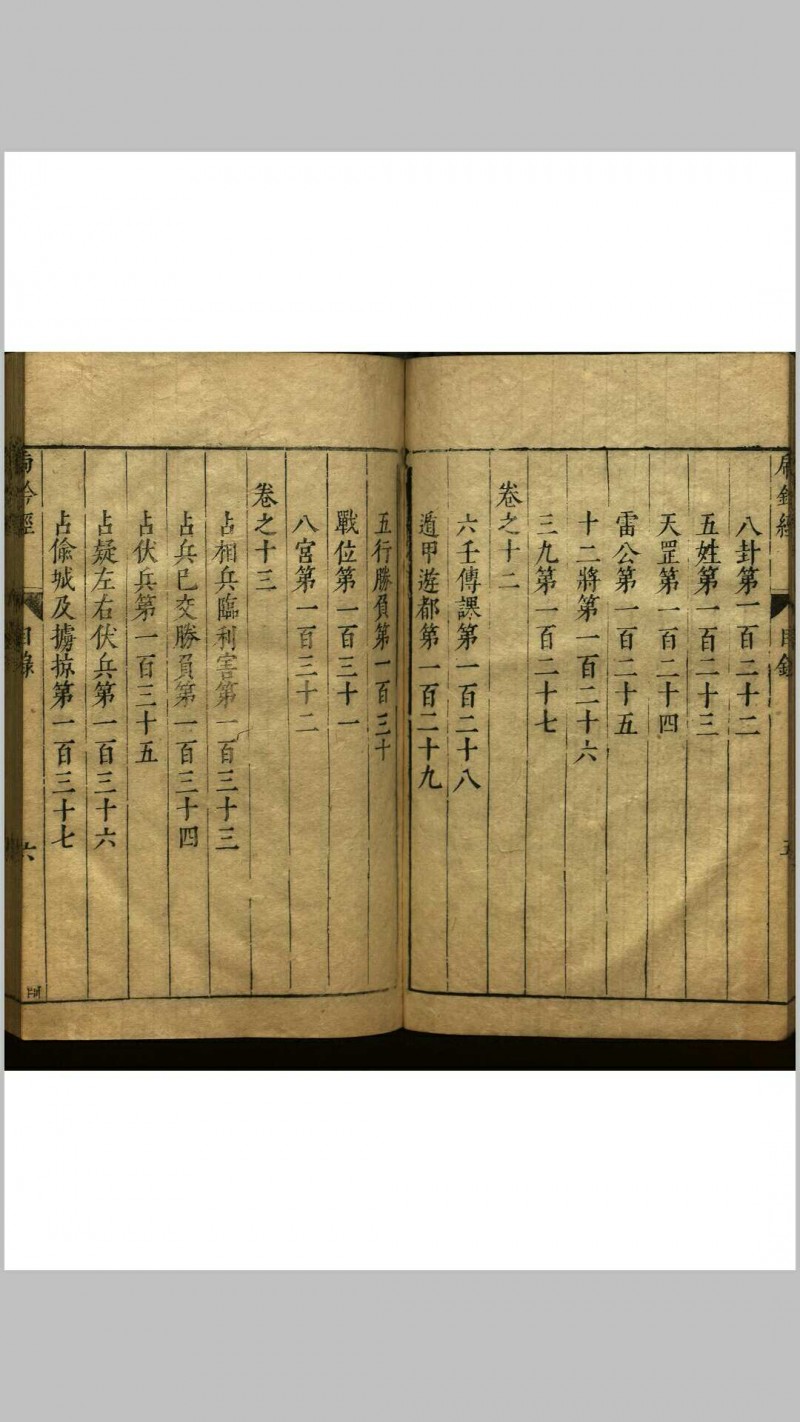 八卦第一百二十二
五姓第一百二十三
天罡第一百二十四
雷公第一百二十五
十二將第一百二十六
三九第一百二十七
卷之十二
六壬傳課第一百二十八
遁甲遊都第一百二十九
五行勝負第一百三十
戰位第一百三十一
八宮第一百三十二
卷之十三
占相兵臨利害第一百三十三
占兵已交勝負第一百三十四
占伏兵第一百三十五
占疑左右伏兵第一百三十六
占偷城及擄掠第一百三十七
目錄
六